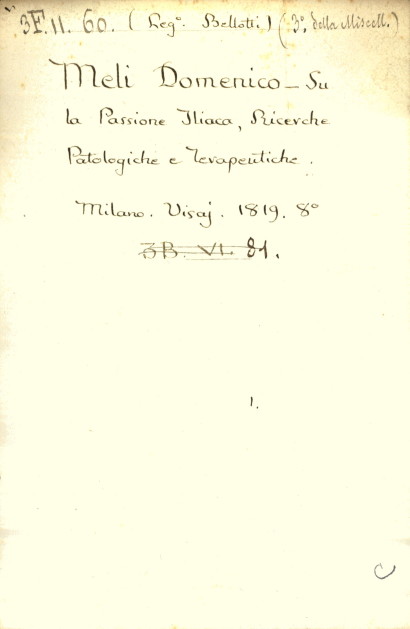 3F.11. 60. (Leg.º Bellotti) (3º. della Miscell.)
Meli Domenico - Su
la Passione Iliaca, Ricerche
Patologiche e Terapeutiche.
Milano. Visaj. 1819. 8º
3B. VI. 81.
1.
C